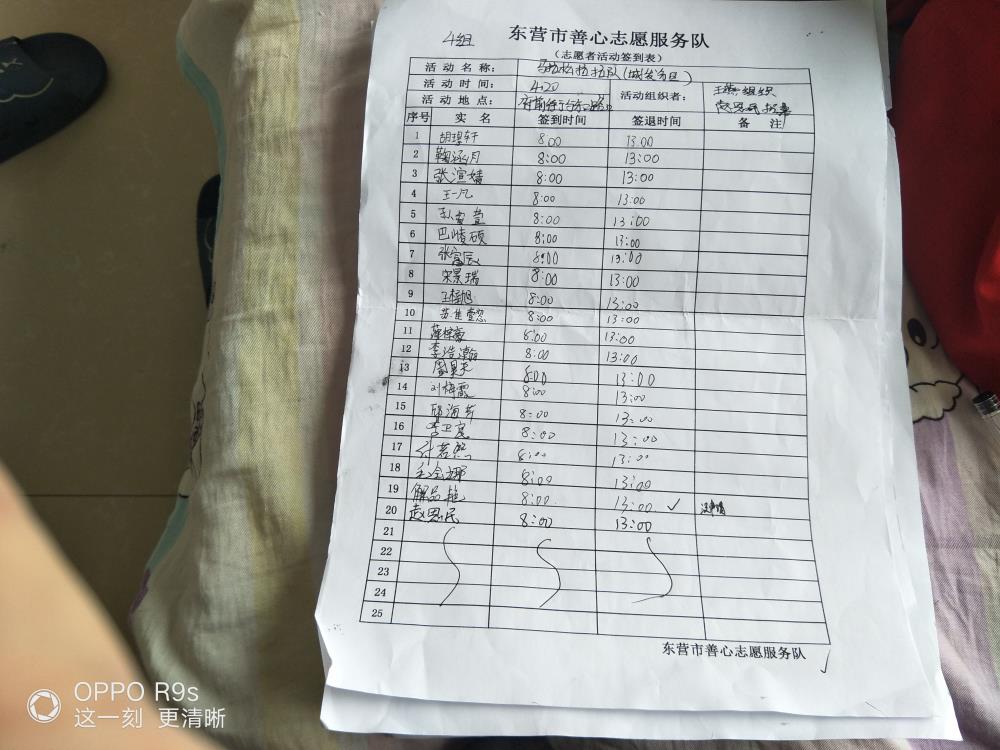 4组
东营市善心志愿服务队
（志愿者活动签到表）
活动名称： 马拉松拉拉队
活动时间： 4.20 活动组织者： 组织
活动地点：
序号 实 名 签到时间 签退时间 备 注
1 胡琪轩 8:00 13:00
2 鞠涵月 8:00 13:00
3 张渲婧 8:00 13:00
4 王一凡 8:00 13:00
5 8:00 13:00
6 巴峻硕 8:00 13:00
7 张宸 8:00 13:00
8 宋景瑞 8:00 13:00
9 8:00 13:00
10 苏佳 8:00 13:00
11 8:00 13:00
12 李浩瀚 8:00 13:00
13 8:00 13:00
14 刘梅霞 8:00 13:00
15 邱海芹 8:00 13:00
16 李卫亮 8:00 13:00
17 8:00 13:00
18 8:00 13:00
19 解品艳 8:00 13:00 ✓
20 赵恩民 8:00 13:00
21
22
23
24
25
东营市善心志愿服务队
OPPO R9s
这一刻 更清晰